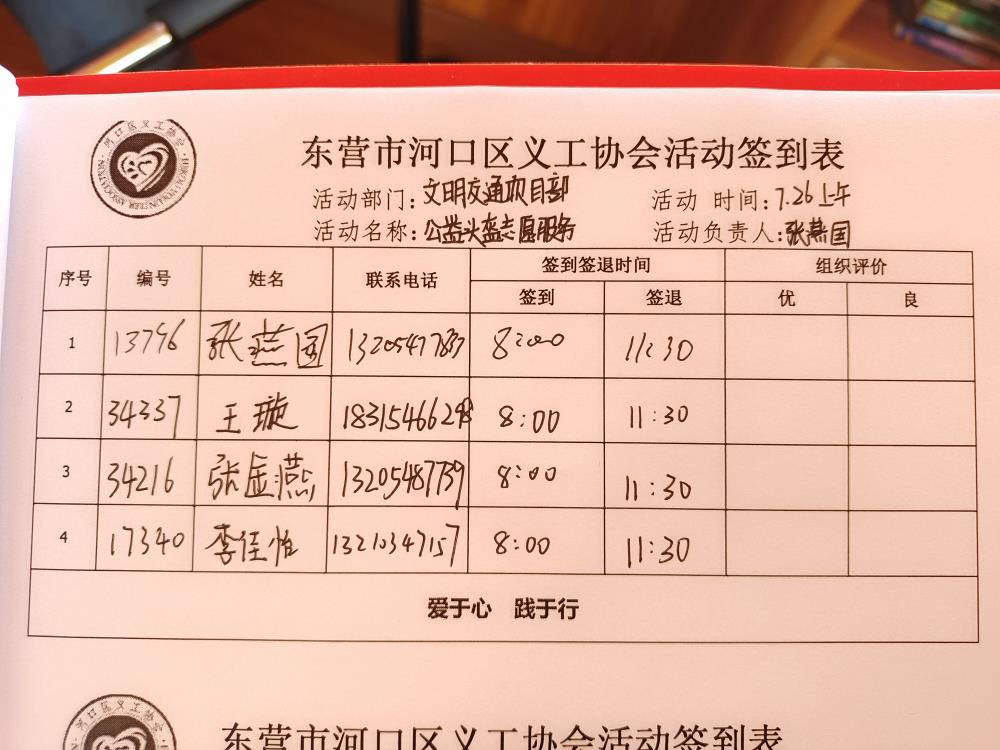 河口区义工协会
HEKOU VOLUNTEER ASSOCIATION
东营市河口区义工协会活动签到表
活动部门:文明交通项目部 活动 时间:7.26上午
活动名称:公益头盔志愿服务 活动负责人:张燕国
序号 编号 姓名 联系电话 签到签退时间 组织评价
签到 签退 优 良
1 13796 张燕国 13205477837 8:00 11:30
2 34337 王璇 18315466298 8:00 11:30
3 34216 张孟燕 13205487739 8:00 11:30
4 17340 李佳怡 13210347157 8:00 11:30
爱于心 践于行
河口区义工协会
东营市河口区义工协会活动签到表